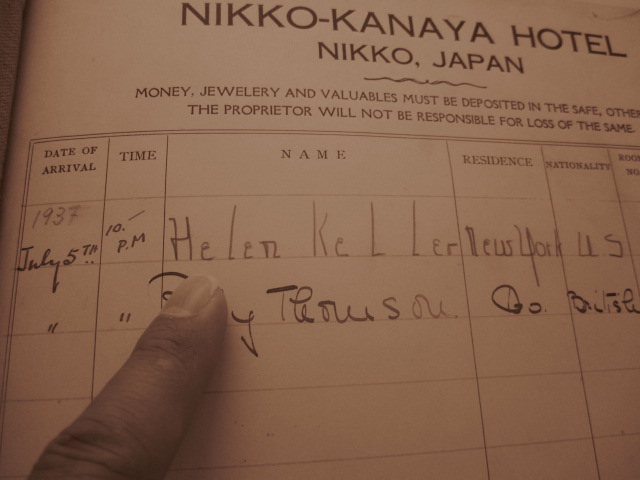 NIKKO-KANAYA HOTEL
NIKKO, JAPAN
MONEY, JEWELERY AND VALUABLES MUST BE DEPOSITED IN THE SAFE, OTHER
THE PROPRIETOR WILL NOT BE RESPONSIBLE FOR LOSS OF THE SAME.
DATE OF ARRIVAL TIME NAME RESIDENCE NATIONALITY ROOM NO.
1937
July 5TH 10.- P.M Helen KeLLer New York US
" " y Thomson Do. British